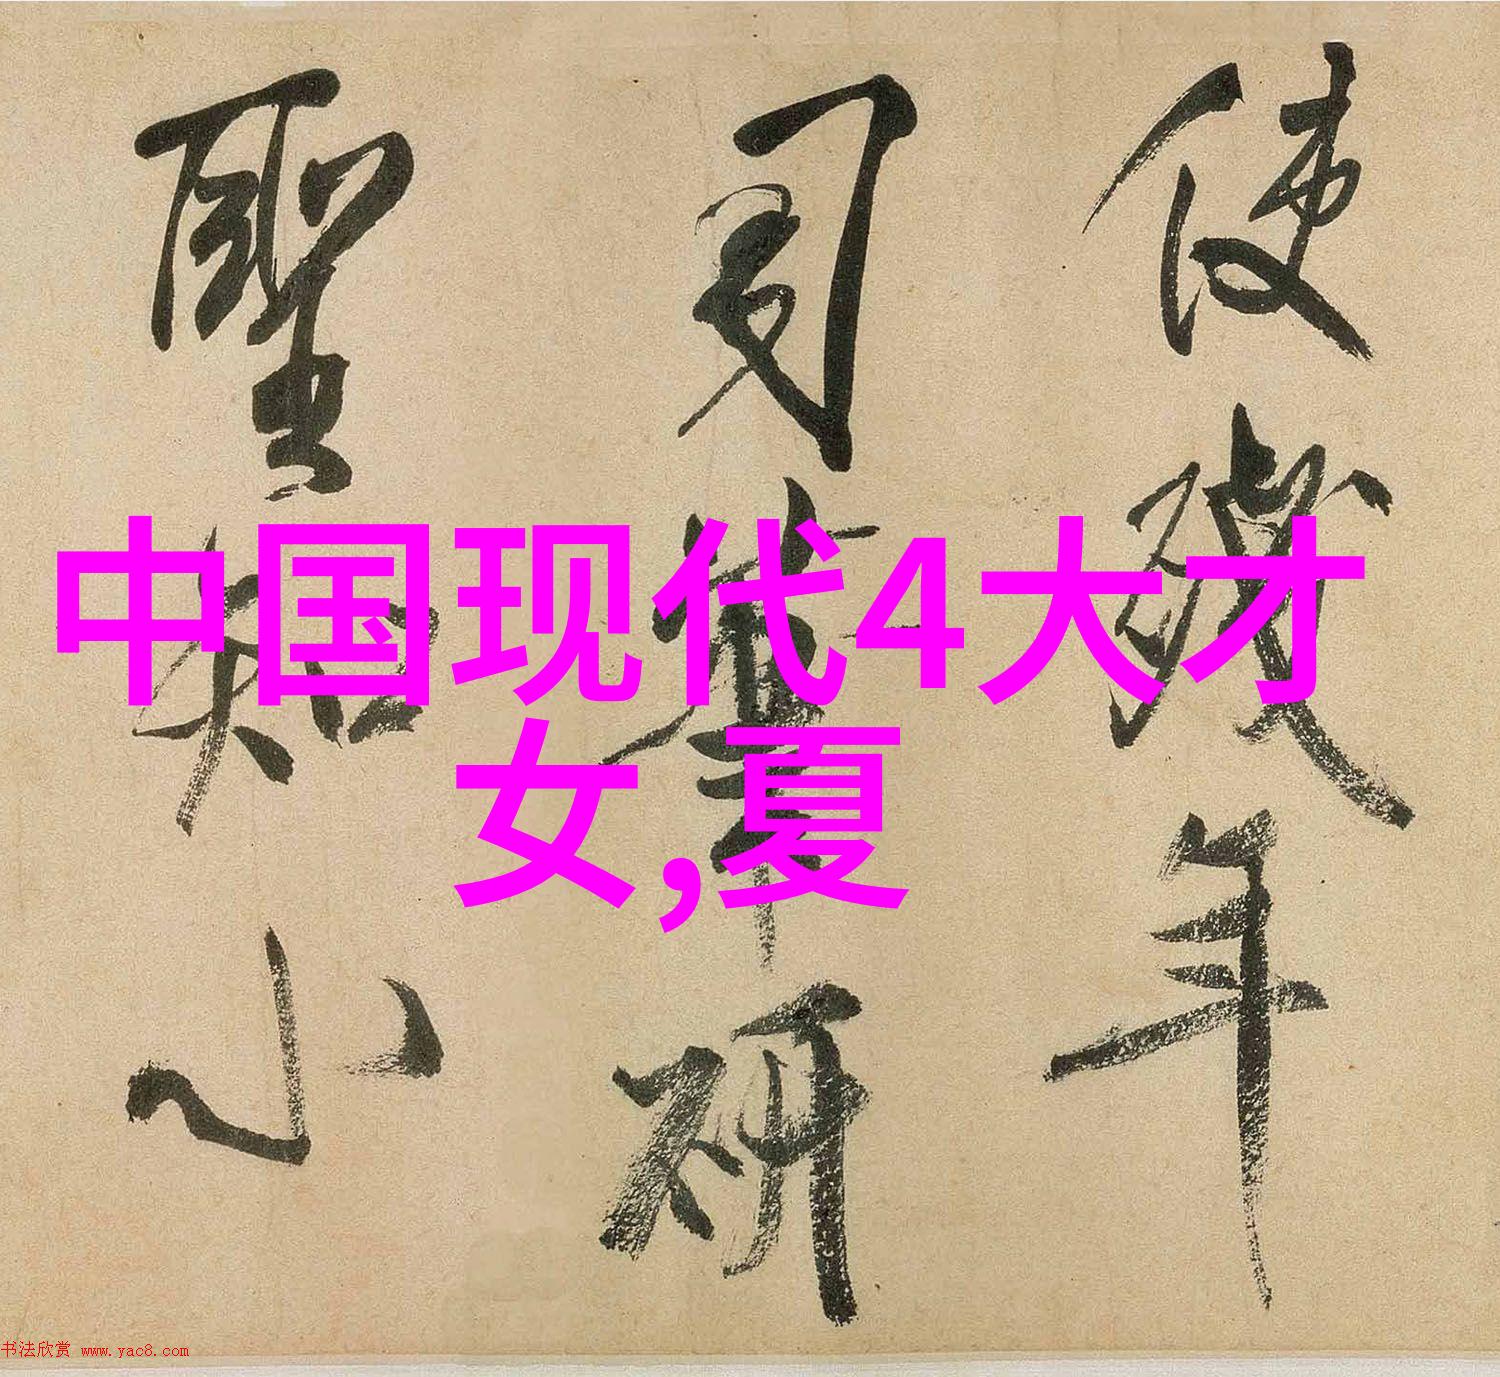 使殘年
司筆研
聖知小
中国现代4大才
女,夏
书法欣赏 www.yac8.com